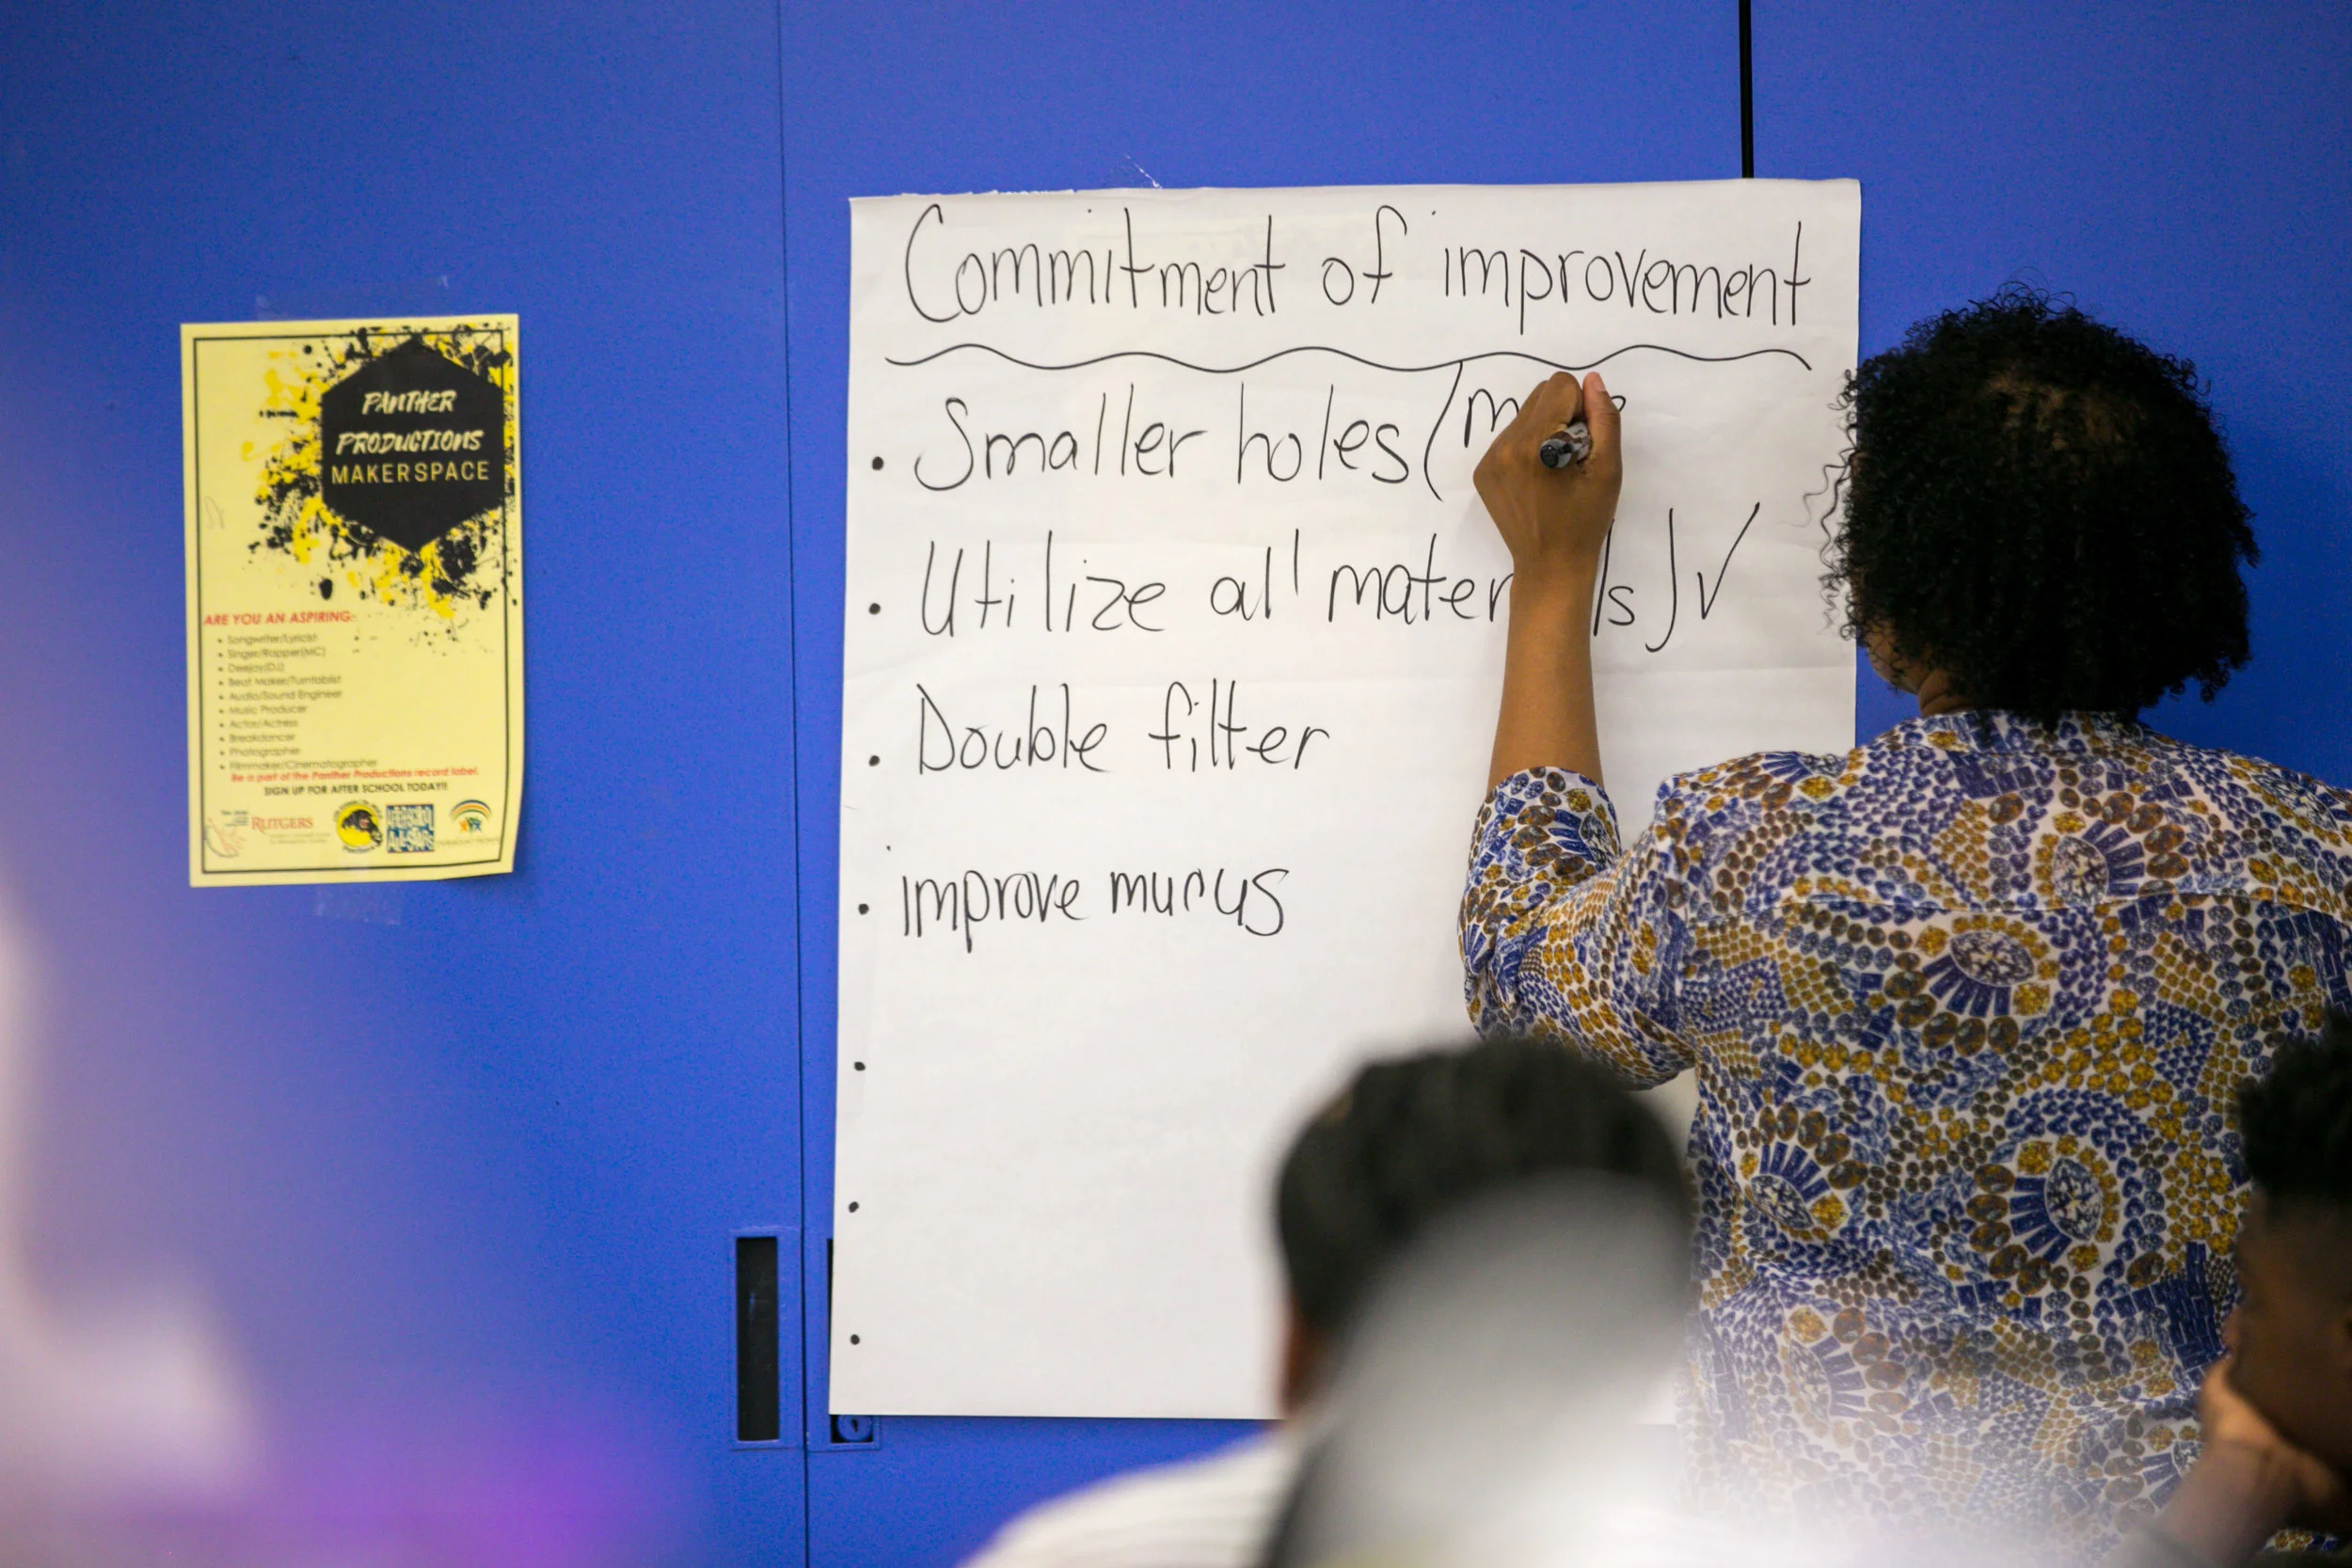 PANTHER
PRODUCTIONS
MAKERSPACE
ARE YOU AN ASPIRING:
• Songwriter/Lyricist
• Singer/Rapper(MC)
• Deejay(DJ)
• Beat Maker/Turntablist
• Audio/Sound Engineer
• Music Producer
• Actor/Actress
• Breakdancer
• Photographer
• Filmmaker/Cinematographer
Be a part of the Panther Productions record label.
SIGN UP FOR AFTER SCHOOL TODAY!!
RUTGERS
Commitment of improvement
• Smaller holes (
• Utilize all materials) ✓
• Double filter
• improve mucus